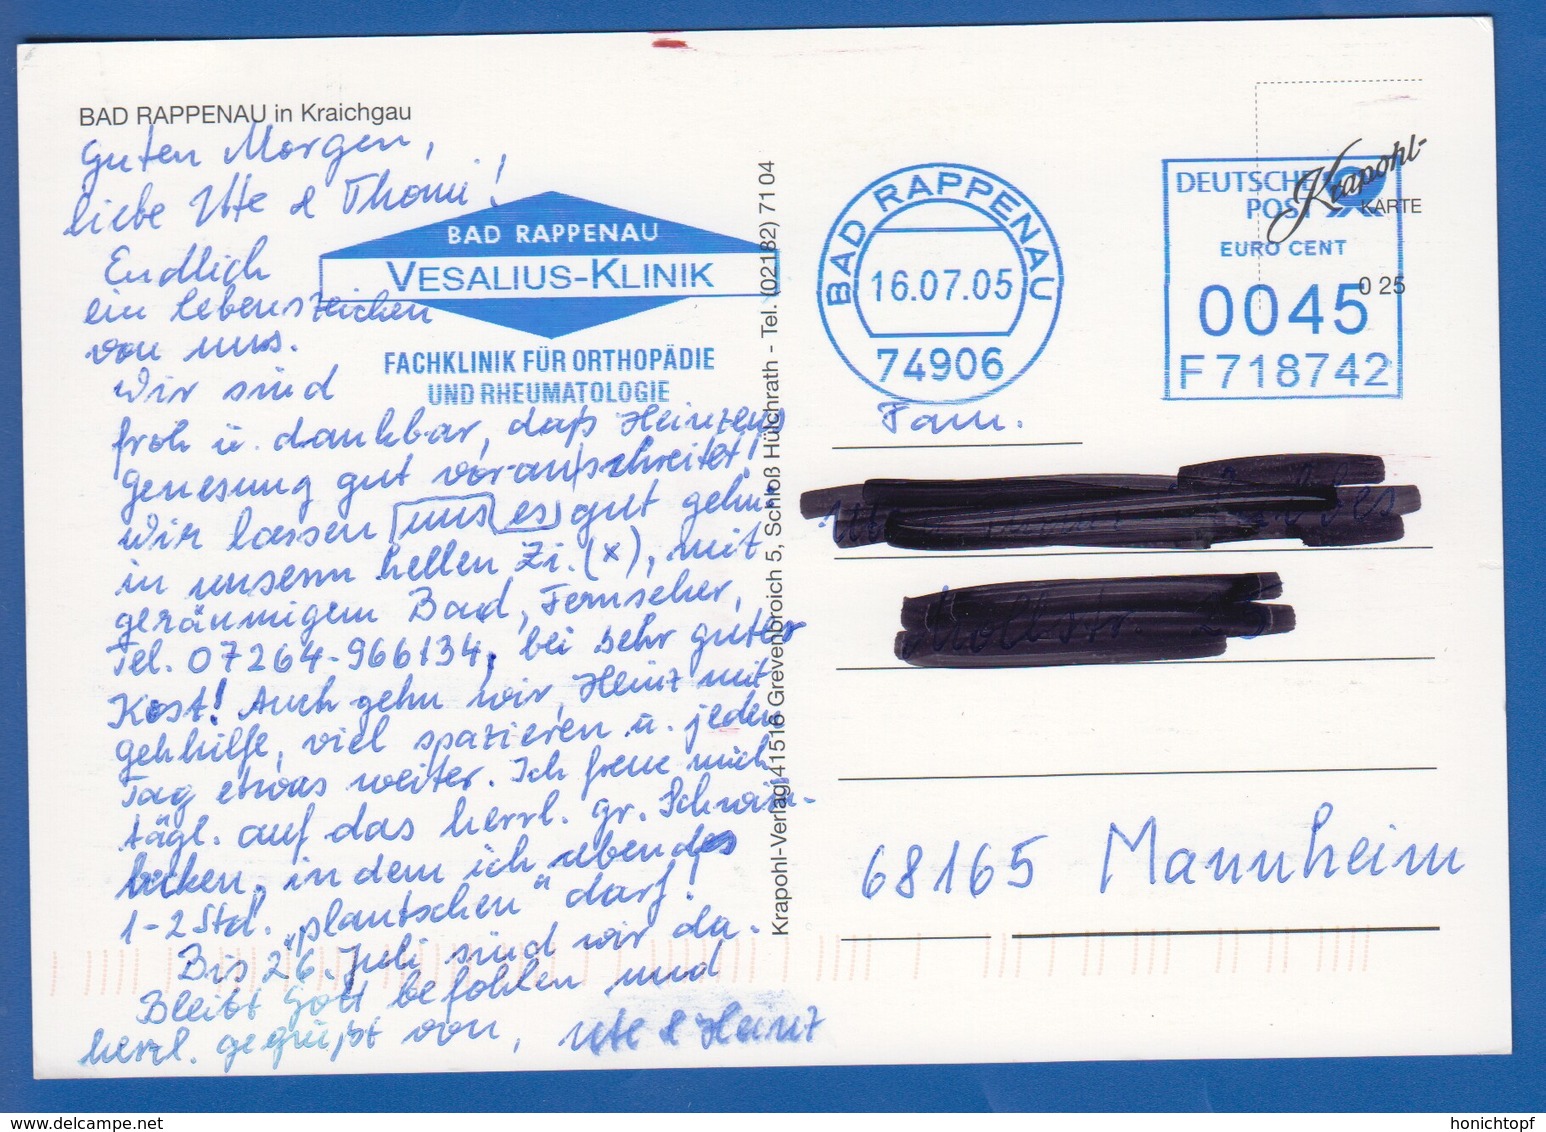 BAD RAPPENAU in Kraichgau
Guten Morgen,
liebe Ute & Thomi!
Endlich
ein Lebenszeichen
von uns.
Wir sind
froh u. dankbar, daß Heinzens
Genesung gut voranschreitet!
Wir lassen uns es gut gehn
in unserm hellen Zi. (x), mit
geräumigem Bad, Fernseher,
Tel. 07264-966134, bei sehr guter
Kost! Auch gehn wir, Heinz mit
gehhilfe, viel spazieren u. jeden
Tag etwas weiter. Ich freue mich
tägl. auf das herrl. gr. Schwim-
becken, in dem ich abends
1-2 Std. „plantschen" darf!
Bis 26. Juli sind wir da.
Bleibt Gott befohlen und
herzl. gegrüßt von, Ute & Heinz
BAD RAPPENAU
VESALIUS-KLINIK
FACHKLINIK FÜR ORTHOPÄDIE
UND RHEUMATOLOGIE
Krapohl-Verlag 41516 Grevenbroich 5, Schloß Hülchrath - Tel. (02182) 71 04
BAD RAPPENAU
16.07.05
74906
DEUTSCHE
POST
EURO CENT
0045
F718742
Krapohl-
KARTE
0 25
Fam.
68165 Mannheim
delcampe.net
honichtopf